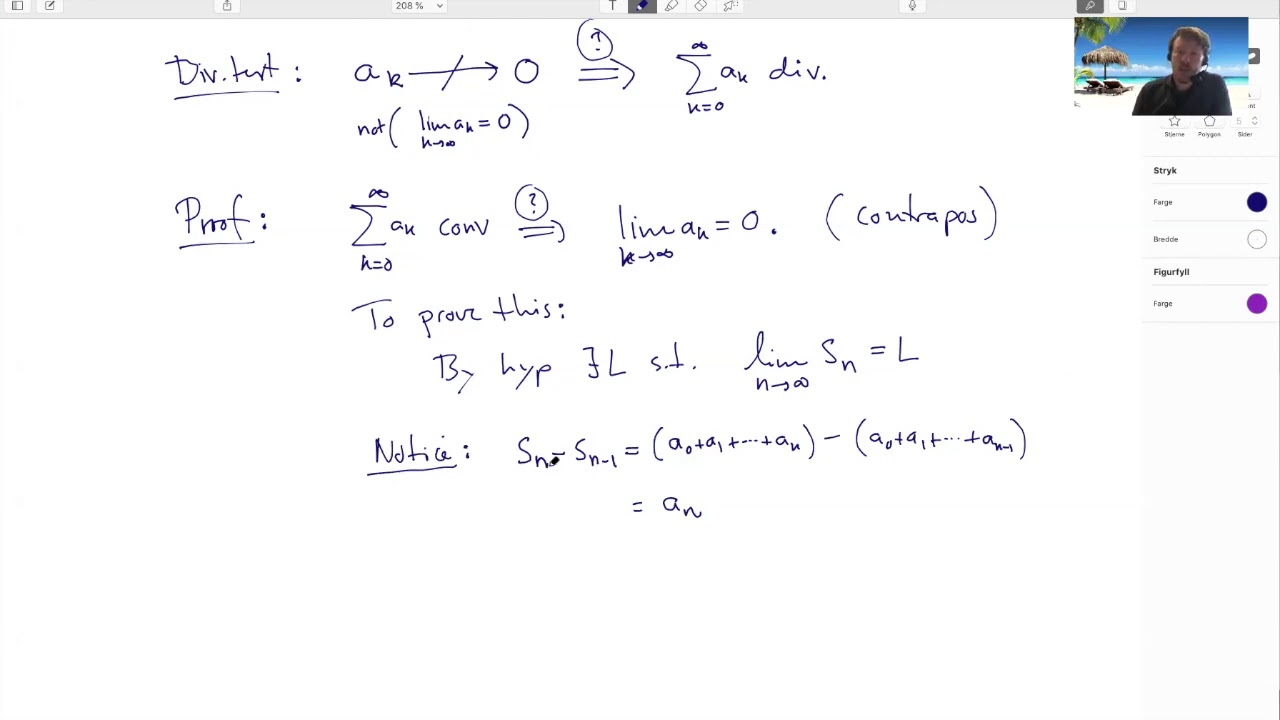 208 %
T
Div. test : aₖ ↛ 0 ⟹(?) ∑_{k=0}^{∞} aₖ div.
not( lim_{k→∞} aₖ = 0 )
Proof : ∑_{k=0}^{∞} aₖ conv ⟹(?) lim_{k→∞} aₖ = 0. (contrapos)
To prove this:
By hyp ∃L s.t. lim_{n→∞} Sₙ = L
Notice : Sₙ - Sₙ₋₁ = (a₀+a₁+···+aₙ) - (a₀+a₁+···+aₙ₋₁)
= aₙ
Stjerne Polygon Sider
5
Stryk
Farge
Bredde
Figurfyll
Farge